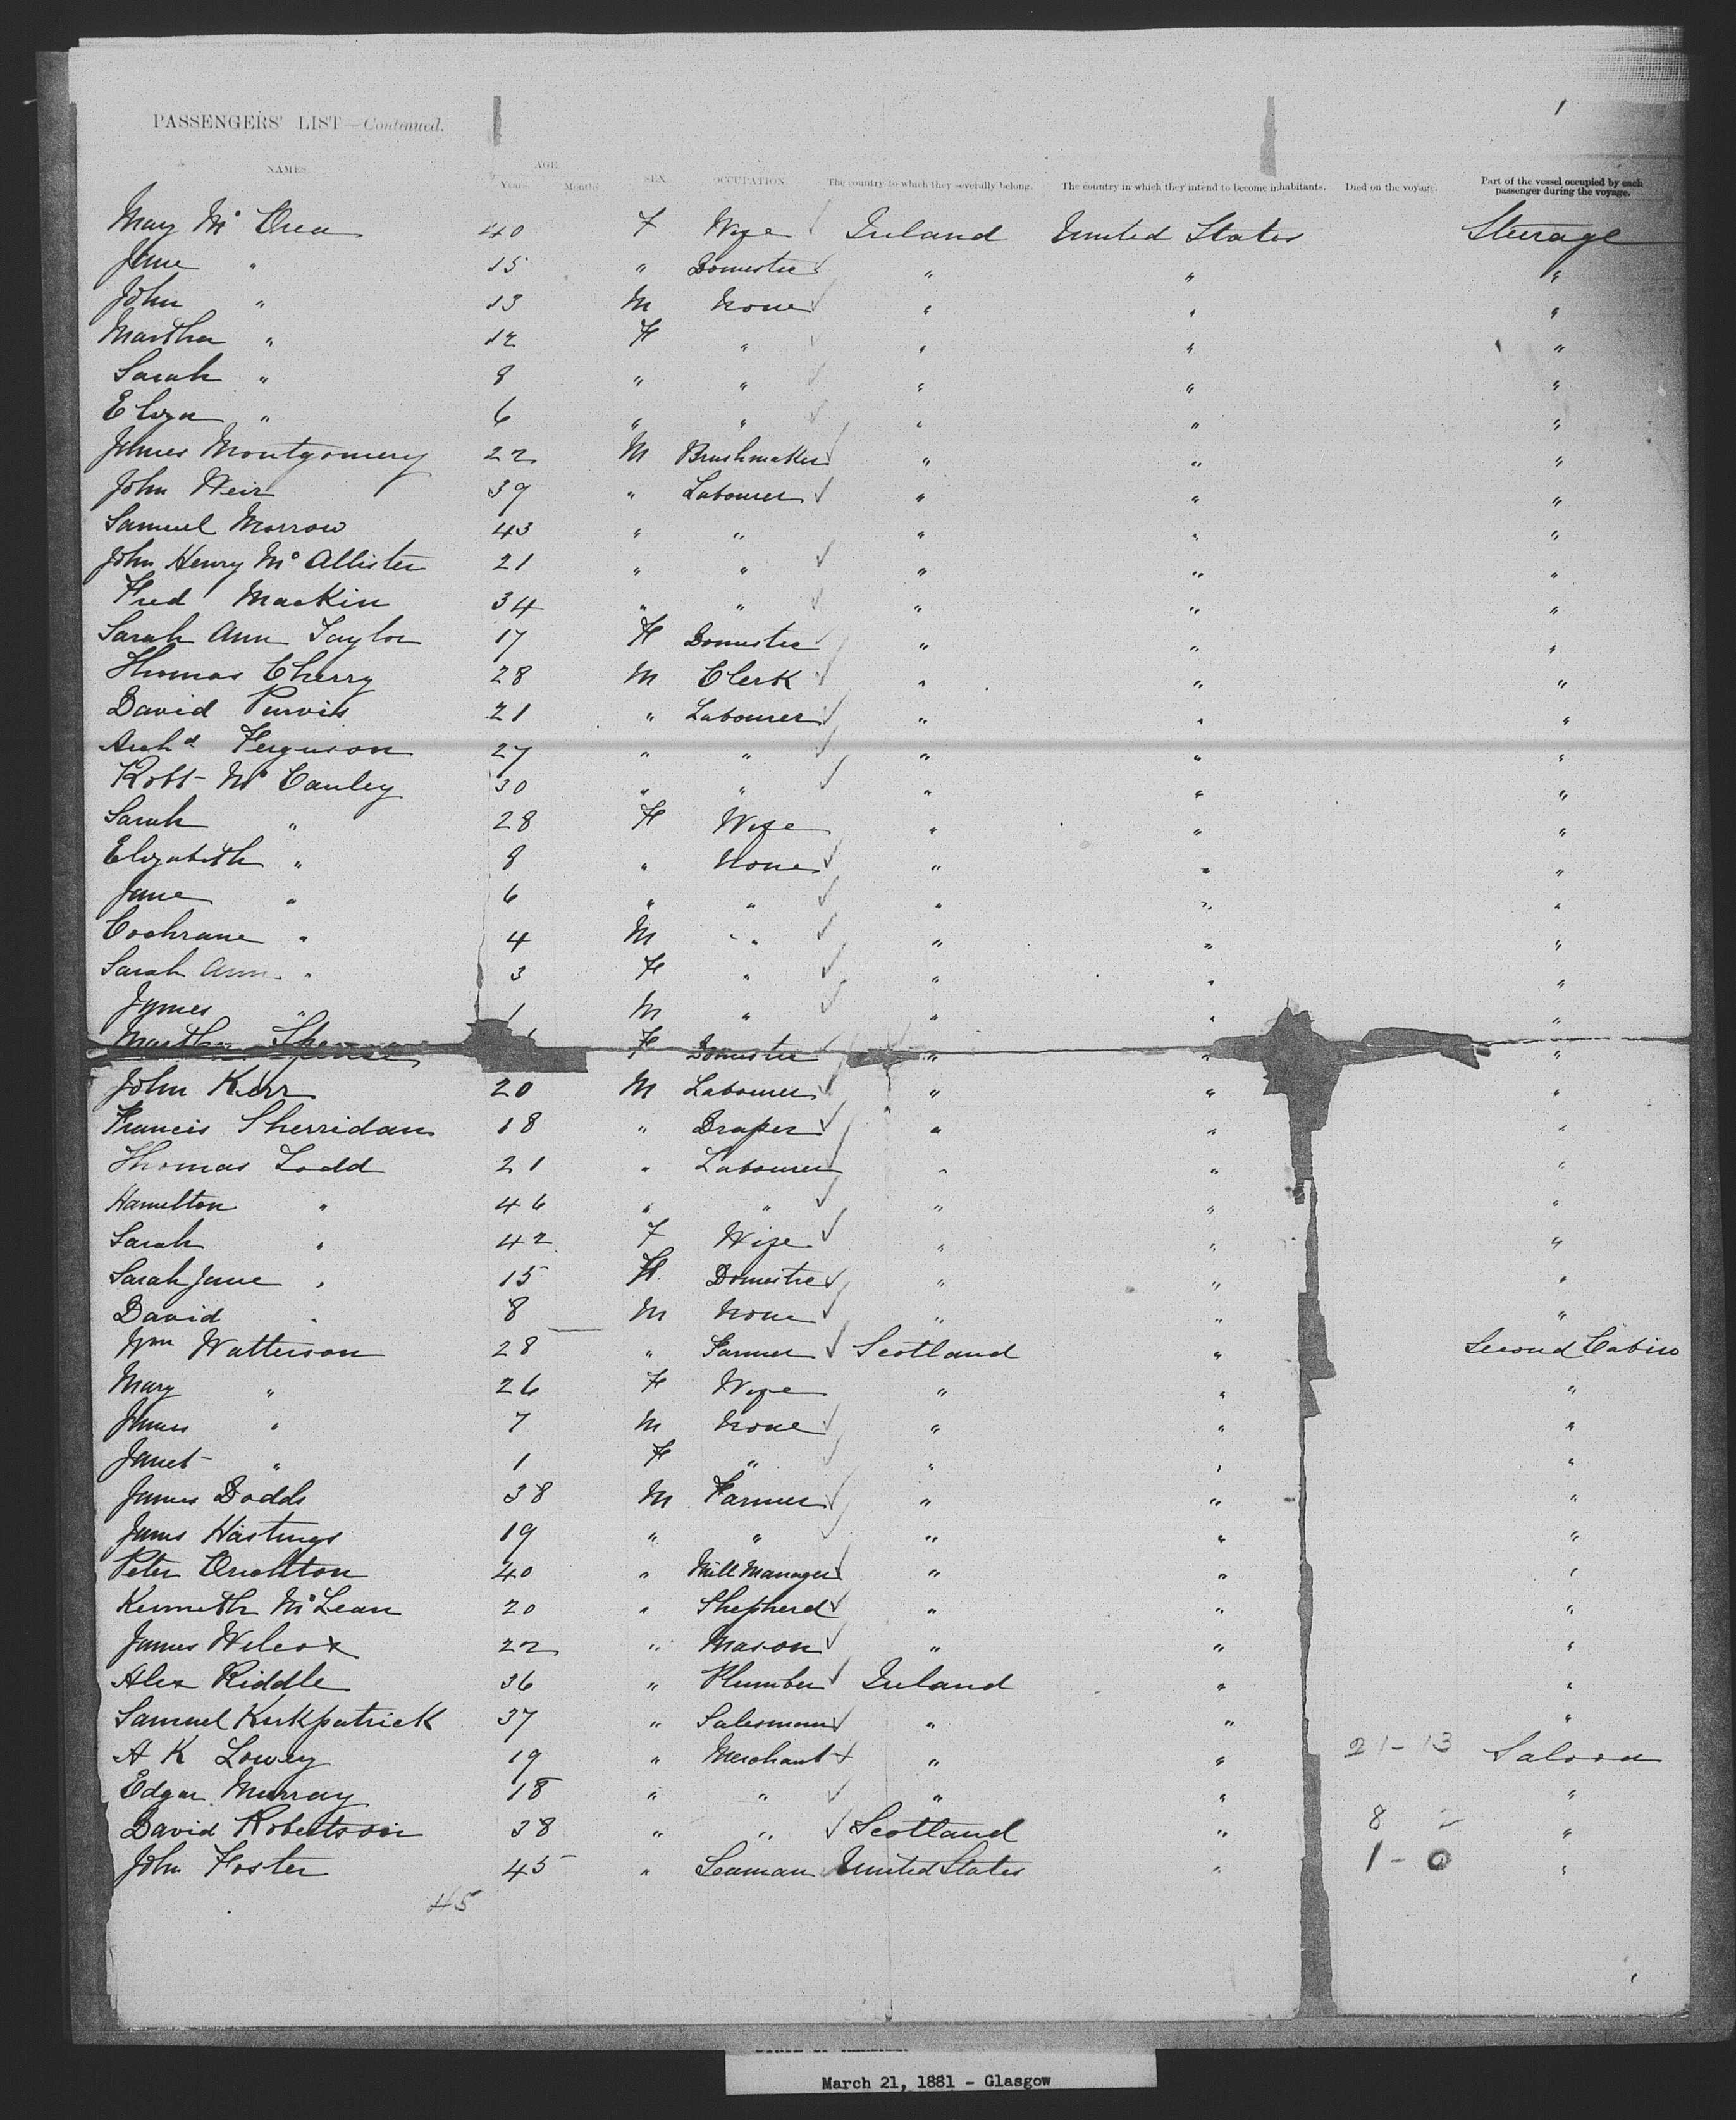 1
PASSENGERS' LIST—Continued.
NAMES AGE. Years. Months SEX. OCCUPATION The country to which they severally belong. The country in which they intend to become inhabitants. Died on the voyage. Part of the vessel occupied by each passenger during the voyage.
May Mc Crea 40 F Wife Ireland United States Steerage
Jane " 15 " Domestic " " "
John " 13 M None " " "
Martha " 12 F " " " "
Sarah " 8 " " " " "
Eliza " 6 " " " " "
James Montgomery 22 M Brushmaker " " "
John Weir 39 " Labourer " " "
Samuel Morrow 43 " " " " "
John Henry Mc Allister 21 " " " " "
Fred Mackin 34 " " " " "
Sarah Ann Taylor 17 F Domestic " " "
Thomas Cherry 28 M Clerk " " "
David Purvis 21 " Labourer " " "
Archd Ferguson 27 " " " " "
Robt Mc Cauley 30 " " " " "
Sarah " 28 F Wife " " "
Elizabeth " 8 " None " " "
Jane " 6 " " " " "
Cochrane " 4 M " " " "
Sarah Ann " 3 F " " " "
James " 1 M " " " "
Martha F Domestic " " "
John Kerr 20 M Labourer " " "
Francis Sherridan 18 " Draper " " "
Thomas Todd 21 " Labourer " " "
Hamilton " 46 " " " " "
Sarah " 42 F Wife " " "
Sarah Jane " 15 F. Domestic " " "
David " 8 M None " " "
Wm Watterson 28 " Farmer Scotland " Second Cabin
Mary " 26 F Wife " " "
James " 7 M None " " "
Janet " 1 F " " " "
James Dodds 38 M Farmer " " "
James Hastings 19 " " " " "
Peter Crichton 40 " Mill Manager " " "
Kenneth McLean 20 " Shepherd " " "
James Wilcox 22 " Mason " " "
Alex Riddle 36 " Plumber Ireland " "
Samuel Kirkpatrick 37 " Salesman " " "
A K Lowry 19 " Merchant " " 21-13 Saloon
Edgar Murray 18 " " " " "
David Robertson 38 " " Scotland " 8 2 "
John Foster 45 " Seaman United States " 1-0 "
45
March 21, 1881 - Glasgow